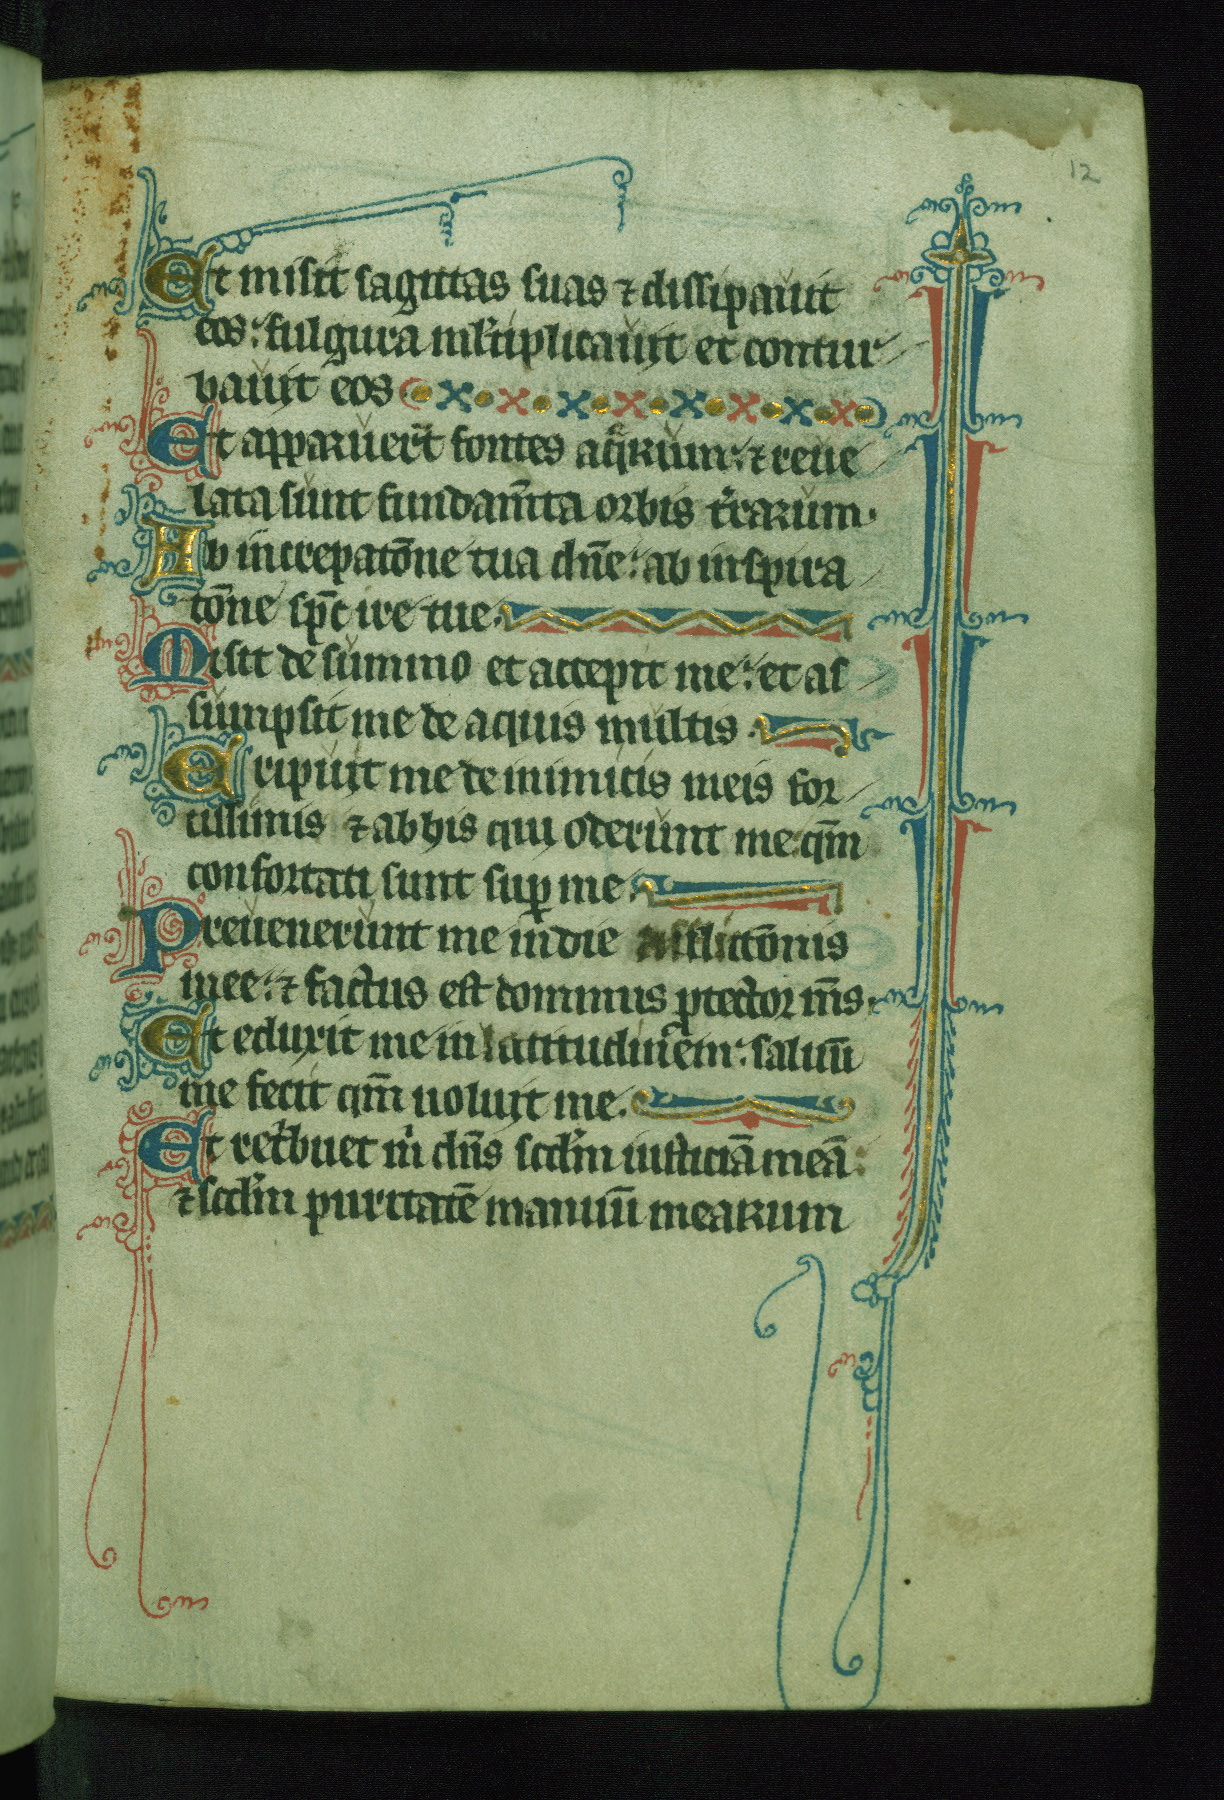 12
Et misit sagittas suas ⁊ dissipauit
eos: fulgura ml̛tiplicauit et contur
bauit eos
Et apparuer̄t fontes aq̄rum: ⁊ reue
lata sunt fundam̄ta orbis t̛rarum.
Ab increpatōne tua dn̄e: ab inspira
tōne sp̄c ire tue.
Misit de summo et accepit me: et as
sumpsit me de aquis multis.
Eripuit me de inimicis meis for
tissimis ⁊ ab hijs qui oderunt me: qm̄
confortati sunt sup̱ me.
Preuenerunt me in die afflictōnis
mee: ⁊ factus est dominus ꝓtector m̄s.
Et eduxit me in latitudinem: saluū
me fecit qm̄ uoluit me.
Et ret̛buet m̛ dn̄s scdm̄ iusticiā meā:
⁊ scdm̄ puritatē manuū mearum